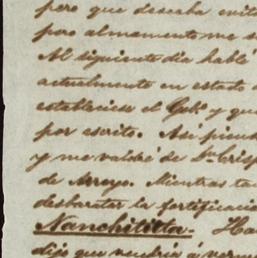 pero que deseaba evita
pero almamente me s
Al siguiente dia hablé
actualmente en estado d
establecise el Gobº y que
por escrito. Asi pienso
y me valdré de Dn Crisp
de Arroyo. Mientras ta
desbaratar la fortificacio
Nanchititla. Ha
dijo que vendria á verme